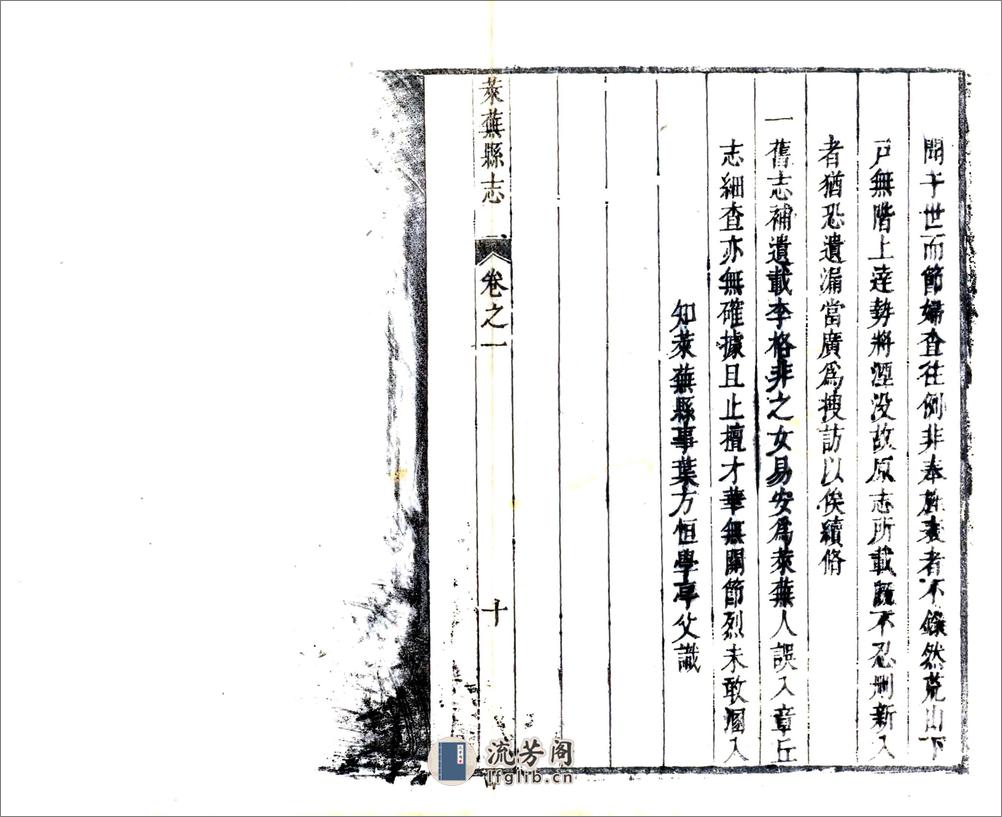 聞于世而節婦查往例非奉旌表者不錄然荒山下
戸無階上達勢將湮没故原志所載槩不忍刪新入
者猶恐遺漏當廣爲搜訪以俟續脩
一舊志補遺載李格非之女易安爲萊蕪人誤入章丘
志細查亦無確據且止擅才華無關節烈未敢溷入
知萊蕪縣事葉方恒學亭父識
萊蕪縣志
卷之一
十
流芳阁
lfglib.cn